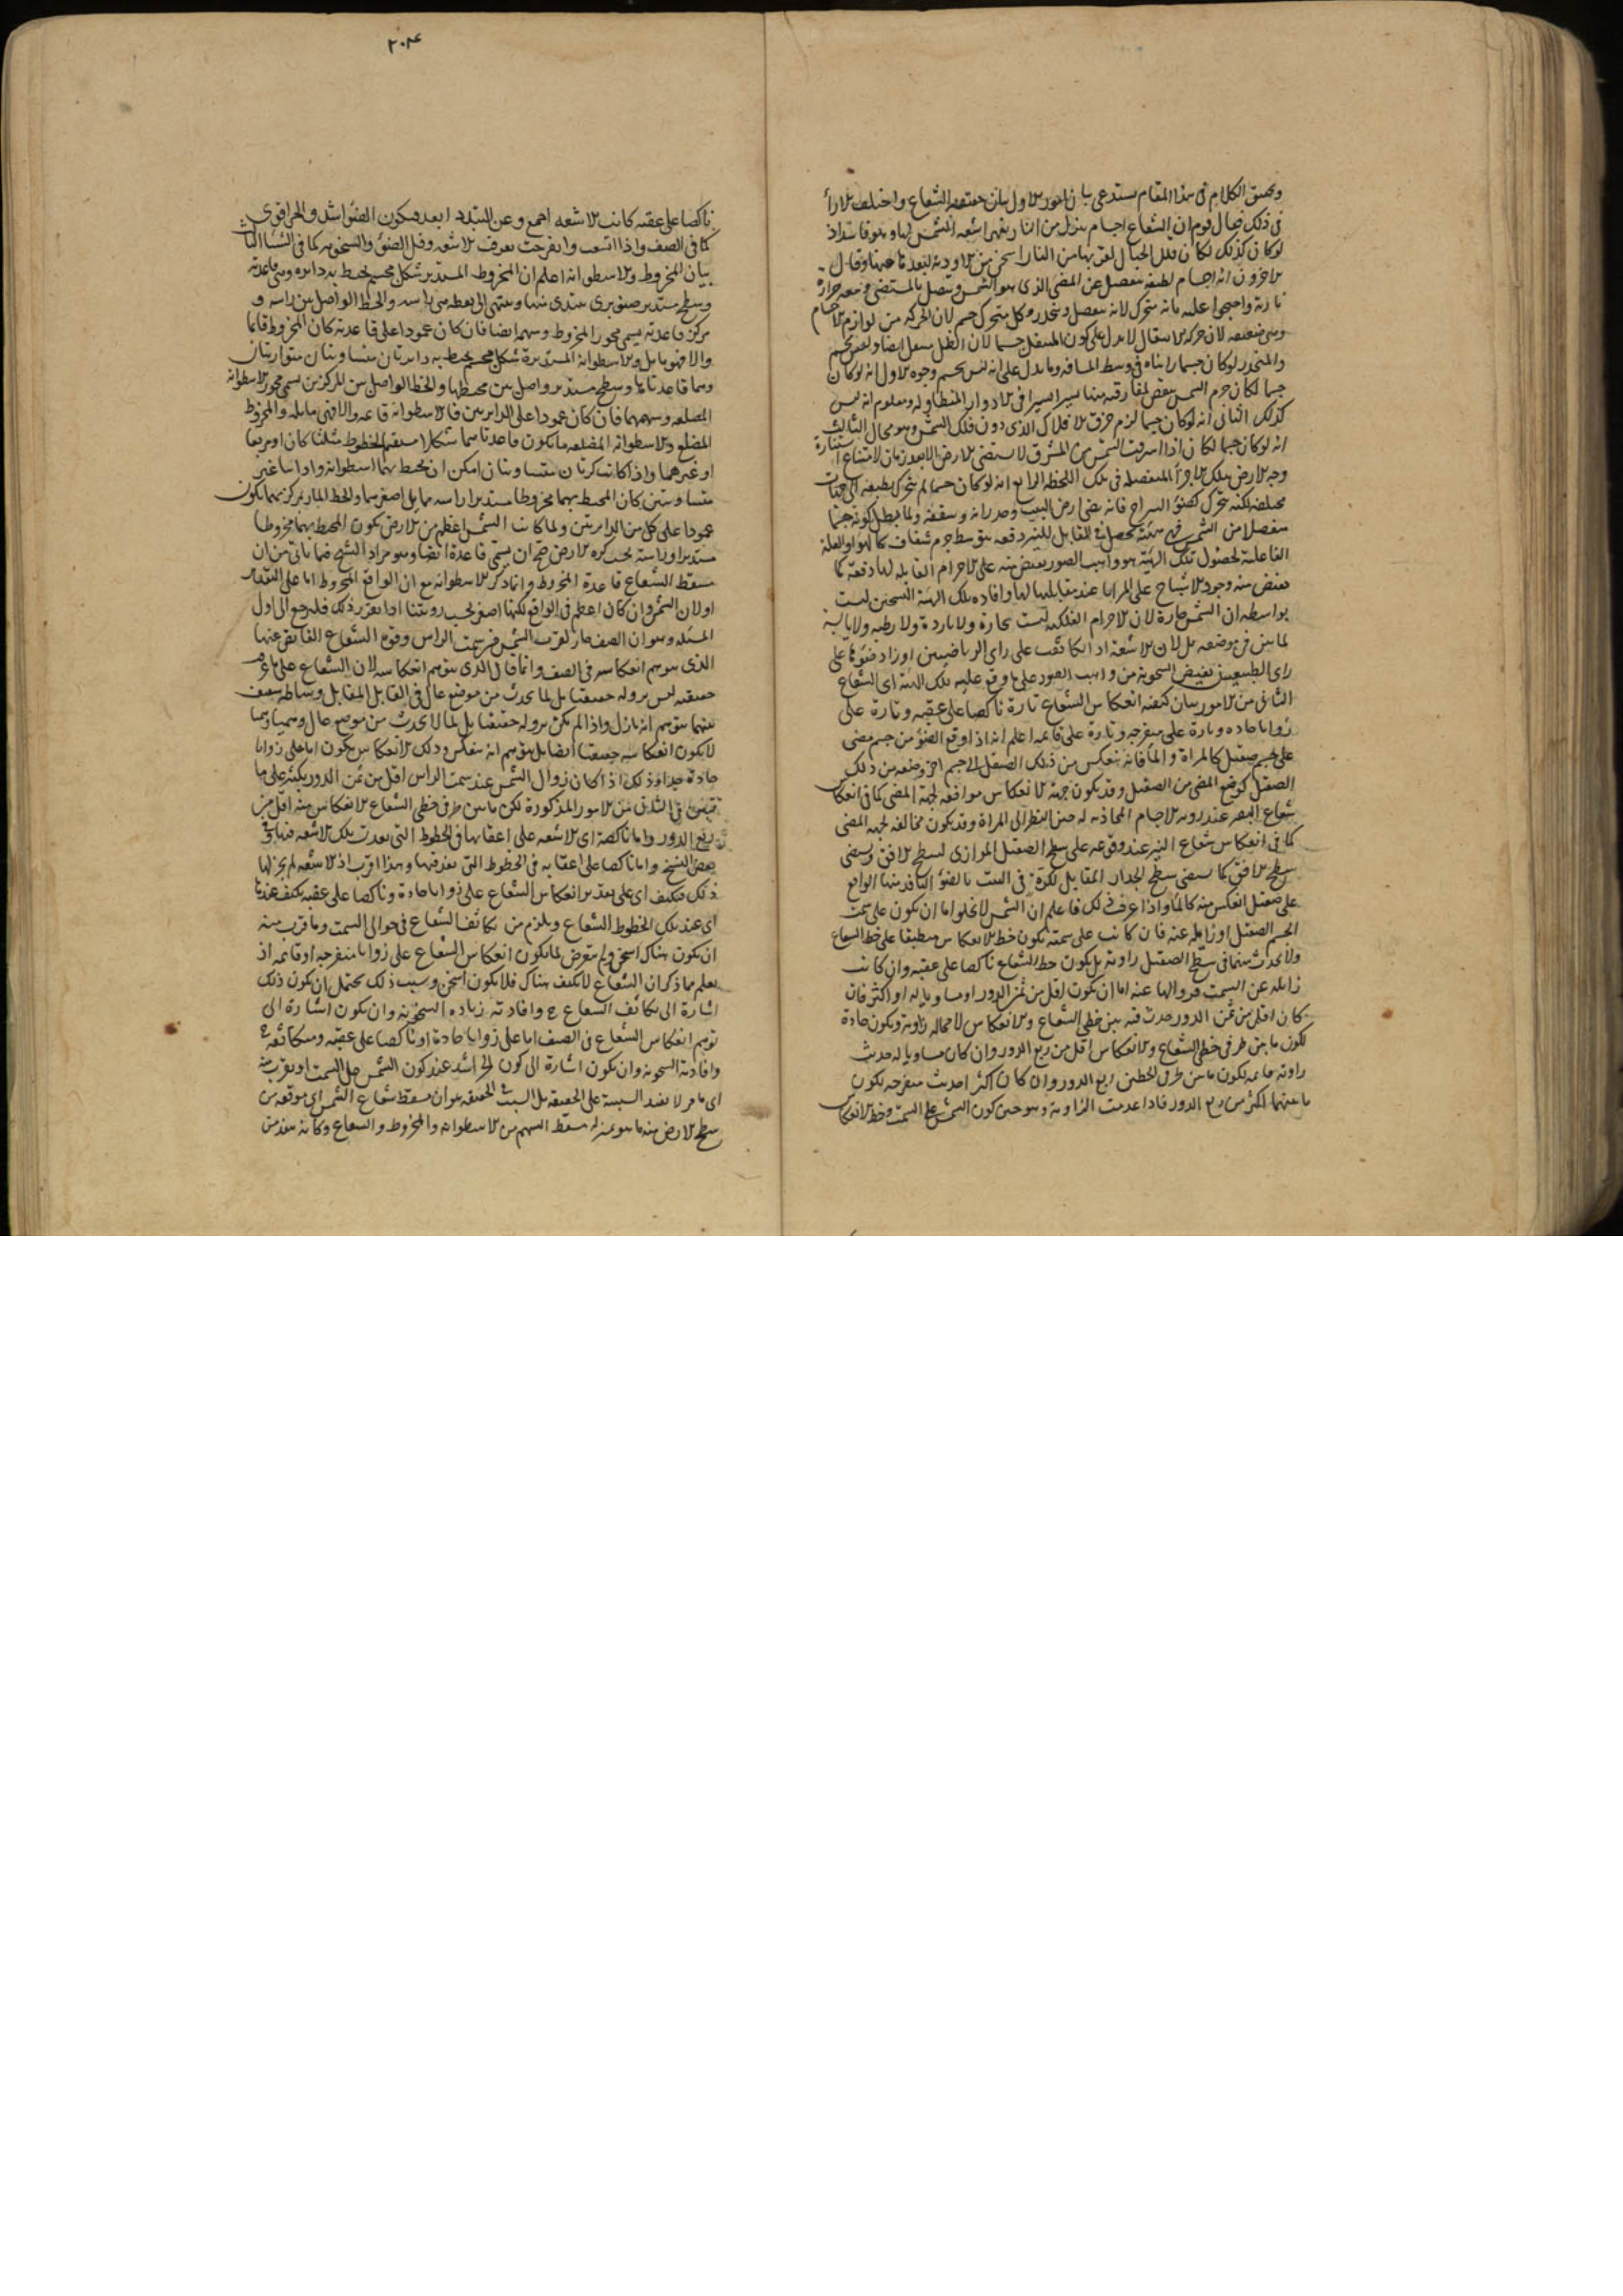 وتحقيق الكلام في هذا المقام يستدعي بيان امور الاول بيان حقيقة الشعاع واختلف الآراء
في ذلك فقال قوم ان الشعاع اجسام ينزل من النار يقهرها اشعة الشمس
لوكان كذلك لكان قلل الجبال لقربها من النار اسخن من الاودية لبعدها عنها وقال
الآخرون انه اجسام لطيفة تنفصل عن المضي الذي هو الشمس وتتصل بالمستضي ومعه حرارة
نارية واحتجوا عليه بانه متحرك لانه منفصل ومنحدر وكل متحرك جسم لان الحركة من لوازم الاجسام
وهي ضعيفة لان حركة الانتقال لا يدل على كون المنتقل جسما لان الظل ينتقل ايضا وليس بجسم
والمنحدر لوكان جسما رايناه في وسط المسافة ومما يدل على انه ليس بجسم وجوه الاول انه لوكان
جسما لكان جرم الشمس ينقص لمفارقته منها يسيرا يسيرا في الادوار المتطاولة ومعلوم انه ليس
كذلك الثاني انه لوكان جسما لزم خرق الافلاك الذي دون فلك الشمس وهو محال الثالث
انه لوكان جسما لكان اذا اشرقت الشمس من المشرق لا يستضي الارض الا بعد زمان لامتناع استنارة
وجه الارض بتلك الاجزاء المنفصلة في تلك اللحظة الرابع انه لوكان جسما لم يتحرك بطبعه الى جهات
مختلفة لكنه يتحرك كضوء السراج فانه يضي ارض البيت وجدرانه وسقفه ولما بطل كونه جسما
منفصلا من الشمس فهي هيئة يحصل في المقابل للنير دفعة بتوسط جرم شفاف كالهواء والعلة
الفاعلة لحصول تلك الهيئة هو واهب الصور يفيض منه على الاجرام القابلة لها دفعة كما
يفيض منه وجود الاشباح على المرايا عند مقابلتها لها وافادة تلك الهيئة السخن ليست
بواسطة ان الشمس حارة لان الاجرام الفلكية ليست بحارة ولا باردة ولا رطبة ولا يابسة
لما بين في موضعه بل لان الاشعة اذا تكاثفت على راي الرياضيين او زاد ضوءها على
راي الطبيعيين يفيض السخونة من واهب الصور على ما وقع عليه تلك الهيئة اي الشعاع
الثاني من الامور بيان كيفية انعكاس الشعاع تارة ناكصا على عقبه وتارة على
زوايا حادة وتارة على منفرجة وتارة على قائمة اعلم انه اذا وقع الضوء من جسم مضي
على جسم صقيل كالمرآة والماء فانه ينعكس من ذلك الصقيل الى جسم آخر وضعه من ذلك
الصقيل كوضع المضي من الصقيل وقد يكون جهة الانعكاس موافقة لجهة المضي كما في انعكاس
شعاع البصر عند رؤية الاجسام المحاذية له حين النظر الى المرآة وقد يكون مخالفة لجهة المضي
كما في انعكاس شعاع النير عند وقوعه على سطح الصقيل الموازي لسطح الافق ويضي
سطح الافق كما يضي سطح الجدار المقابل لكوة في البيت بالضوء النافذ منها الواقع
على صقيل انعكس منه كالماء واذا عرفت ذلك فاعلم ان الشمس لا يخلوا اما ان تكون على سمت
الجسم الصقيل او زائلة عنه فان كانت على سمته يكون خط الانعكاس منطبقا على خط الشعاع
ولا يحدث منهما في سطح الصقيل زاوية بل يكون خط الشعاع ناكصا على عقبه وان كانت
زائلة عن السمت فزوالها عنه اما ان يكون اقل من ثمن الدور او مساويا له او اكثر فان
كان اقل من ثمن الدور حدث فيه بين خطي الشعاع والانعكاس لا محالة زاوية وتكون حادة
لكون ما بين طرفي خطي الشعاع والانعكاس اقل من ربع الدور وان كان مساويا له حدث
زاوية قائمة لكون ما بين طرفي الخطين ربع الدور وان كان اكثر احدث منفرجة لكون
ما بينهما اكثر من ربع الدور فاذا عدمت الزاوية وهو حين كون الشمس على السمت وخط الانعكاس
٢٠٤
ناكصا على عقبه كانت الاشعة اجمع وعن التبدد ابعد فيكون الضوء اشد والحر اقوى
كما في الصيف واذا اتسعت وانفرجت تفرق الاشعة وقل الضوء والسخونة كما في الشتاء الثالث
بيان المخروط والاسطوانة اعلم ان المخروط المستدير شكل مجسم يحيط به دائرة وهي قاعدته
وسطح مستدير صنوبري يبتدي منها وينتهي الى نقطة هي راسه والخط الواصل بين راسه و
مركز قاعدته يسمى محور المخروط وسهمه ايضا فان كان عمودا على قاعدته كان المخروط قائما
والا فهو مايل والاسطوانة المستديرة شكل مجسم يحيط به دايرتان متساويتان متوازيتان
وهما قاعدتاها وسطح مستدير واصل بين محيطيهما والخط الواصل بين المركزين يسمى محور الاسطوانة
وسهمها فان كان عمودا على الدايرتين فالاسطوانة قائمة والا فهي مايلة والمخروط
المضلع والاسطوانة المضلعة ما يكون قاعدتاهما شكلا مستقيم الخطوط مثلثا كان او مربعا
او غيرهما واذا كانت كرتان متساويتان امكن ان يحيط بهما اسطوانة واذا كانتا غير
متساويتين كان المحيط بهما مخروطا مستديرا راسه مما يلي اصغرهما والخط المار بمركزيهما يكون
عمودا على كل من الدايرتين ولما كانت الشمس اعظم من الارض يكون المحيط بهما مخروطا
مستديرا وراسه تحت كرة الارض صح ان يسمى قاعدة ايضا وهو مراد الشيخ فيما ياتي من ان
مسقط الشعاع قاعدة المخروط وانما ذكر الاسطوانة مع ان الواقع المخروط اما على التقدير
او لان الشمس وان كان اعظم في الواقع لكنها اصغر بحسب رؤيتنا اذا تقرر ذلك فليرجع الى اول
المسئلة وهو ان الصيف حار لقرب الشمس من سمت الراس وقوة الشعاع الفايض عنها
الذي يتوهم انعكاسه في الصيف وانما قال الذي يتوهم انعكاسه لان الشعاع على ما عرفت
حقيقته ليس نزوله حقيقيا بل لما يحدث من موضع عال في القابل المقابل وساطة شفيف
بينهما يتوهم انه نازل واذا لم يكن نزوله حقيقيا بل لما يحدث من موضع عال
لا يكون انعكاسه حقيقيا ايضا بل يتوهم انه ينعكس وذلك الانعكاس يكون اما على زوايا
حادة جدا وذلك اذا كان زوال الشمس عند سمت الراس اقل من ثمن الدور بكثير على ما
تبين في الثاني من الامور المذكورة لكون ما بين طرفي خطي الشعاع الانعكاس منه اقل من
ربع الدور واما ناكصة اي الاشعة على اعقابها في الخطوط التي نفذت تلك الاشعة فيها وفي
بعض النسخ واما ناكصا على اعقابه في الخطوط التي نفذ فيها وهذا اقرب اذ الاشعة لم يجر لها
ذكر فيكيف اي على تقدير انعكاس الشعاع على زوايا حادة وناكصا على عقبه يكثف عندها
اي عند تلك الخطوط الشعاع ويلزم من تكاثف الشعاع في حوالى السمت وما قرب منه
ان يكون هناك اسخن ولم يتعرض لما يكون انعكاس الشعاع على زوايا منفرجة او قائمة اذ
يعلم مما ذكر ان الشعاع لا يكثف هناك فلا يكون اسخن وسبب ذلك يحتمل ان يكون ذلك
اشارة الى تكاثف الشعاع ح وافادته زيادة السخونة وان يكون اشارة الى
توهم انعكاس الشعاع في الصيف اما على زوايا حادة او ناكصا على عقبه
وافادته السخونة وان يكون اشارة الى كون الحر اشد عند كون الشمس على السمت او بقرب منه
اي ما مر لا يفيد السببية على الحقيقة بل السبب في الحقيقة هو ان مسقط شعاع الشمس اي موقعه من
سطح الارض منه ما هو بمنزلة مسقط السهم من الاسطوانة والمخروط والشعاع وكانه ينفذ من